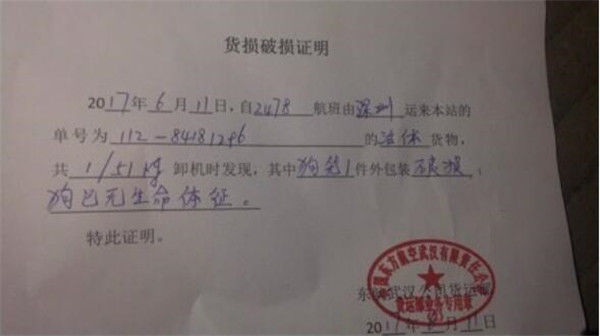 货损破损证明
2017年6月11日,自2478航班由深圳运来本站的
单号为 112-84181296 的活体货物,
共 1/51kg 卸机时发现,其中狗笼1件外包装破损;
狗已无生命体征。
特此证明。
东方航空武汉有限责任公司
货运部业务专用章
2017年 月11日